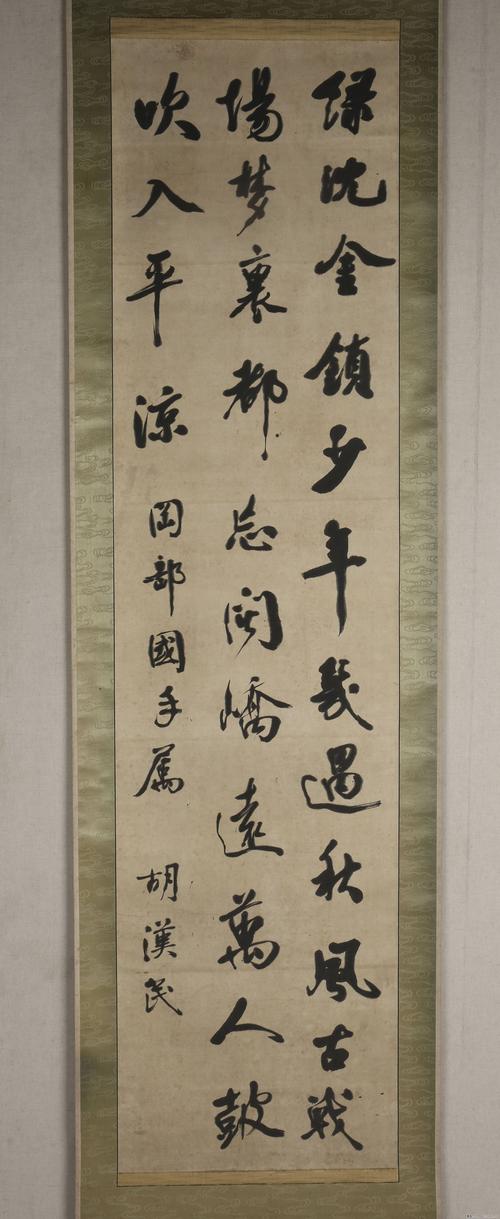 緑沈金鎖少年幾過秋風古戰
場梦裏都忘閩嶠遠萬人鼓
吹入平涼 岡部國手屬 胡漢民